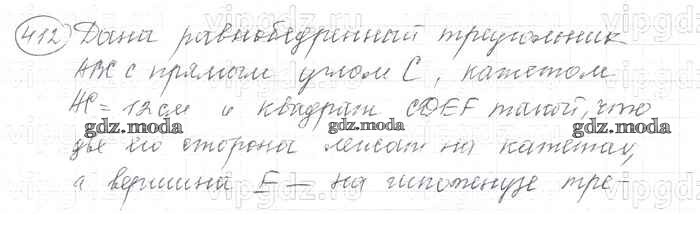 412 Дана равнобедренный треугольник
ABC с прямым углом C, катетом
AC = 12 см и квадрат CDEF такой, что
две его стороны лежат на катетах,
а вершина E — на гипотенузе тре-
gdz.moda gdz.moda gdz.moda